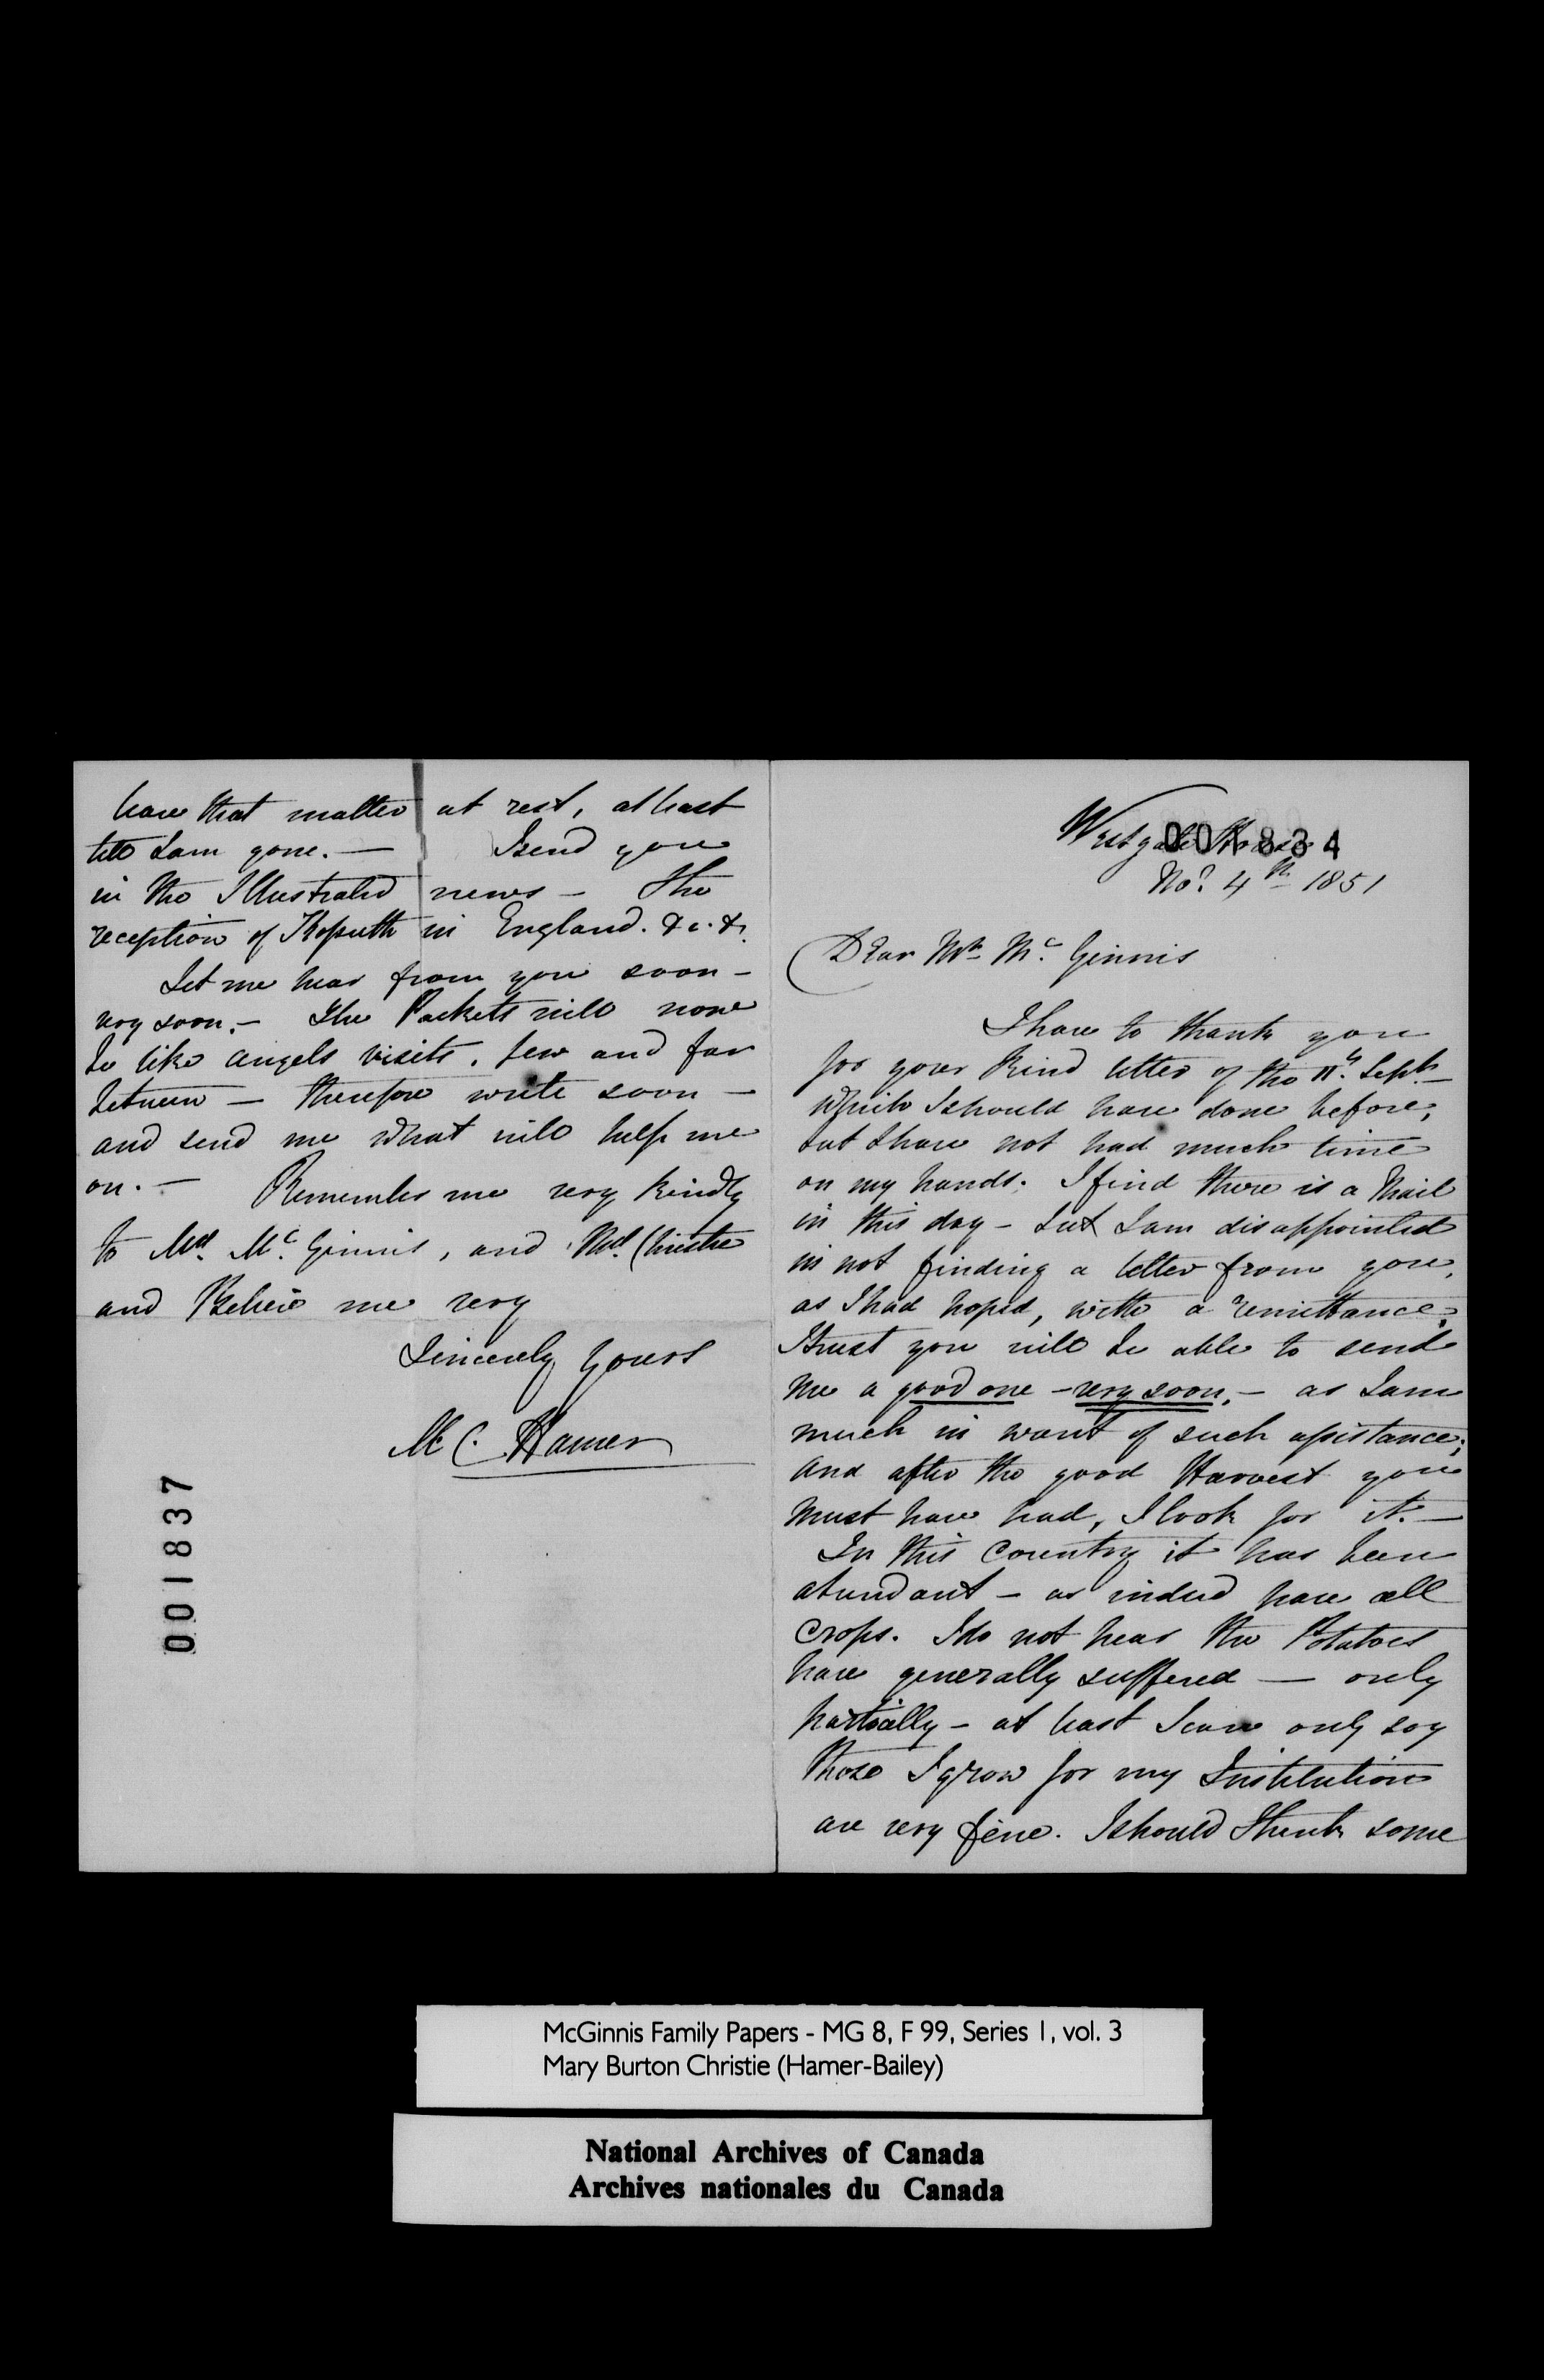 have that matter at rest, at least
till I am gone. — I send you
in the Illustrated news — the
reception of Kossuth in England. &c. &c.
Let me hear from you soon —
very soon. — The Packets will now
be like angels visits, few and far
between — therefore write soon —
and send me what will help me
on. — Remember me very kindly
to Mrs. McGinnis, and Mrs. Christie
and Believe me very
Sincerely Yours
M C. Hamer
001837
Westgate House
001834
Nov. 4th 1851
Dear Mr. McGinnis
I have to thank you
for your kind letter of the 11th. Sept.
which I should have done before,
but I have not had much time
on my hands. I find there is a Mail
in this day — but I am disappointed
in not finding a letter from you,
as I had hoped, with a remittance;
I trust you will be able to send
me a good one — very soon, — as I am
much in want of such assistance;
and after the good Harvest you
must have had, I look for it. —
In this Country it has been
abundant — as indeed have all
Crops. I do not hear the Potatoes
have generally suffered — only
partially — at least I can only say
those I grow for my Institution
are very fine. I should think some
McGinnis Family Papers - MG 8, F 99, Series 1, vol. 3
Mary Burton Christie (Hamer-Bailey)
National Archives of Canada
Archives nationales du Canada